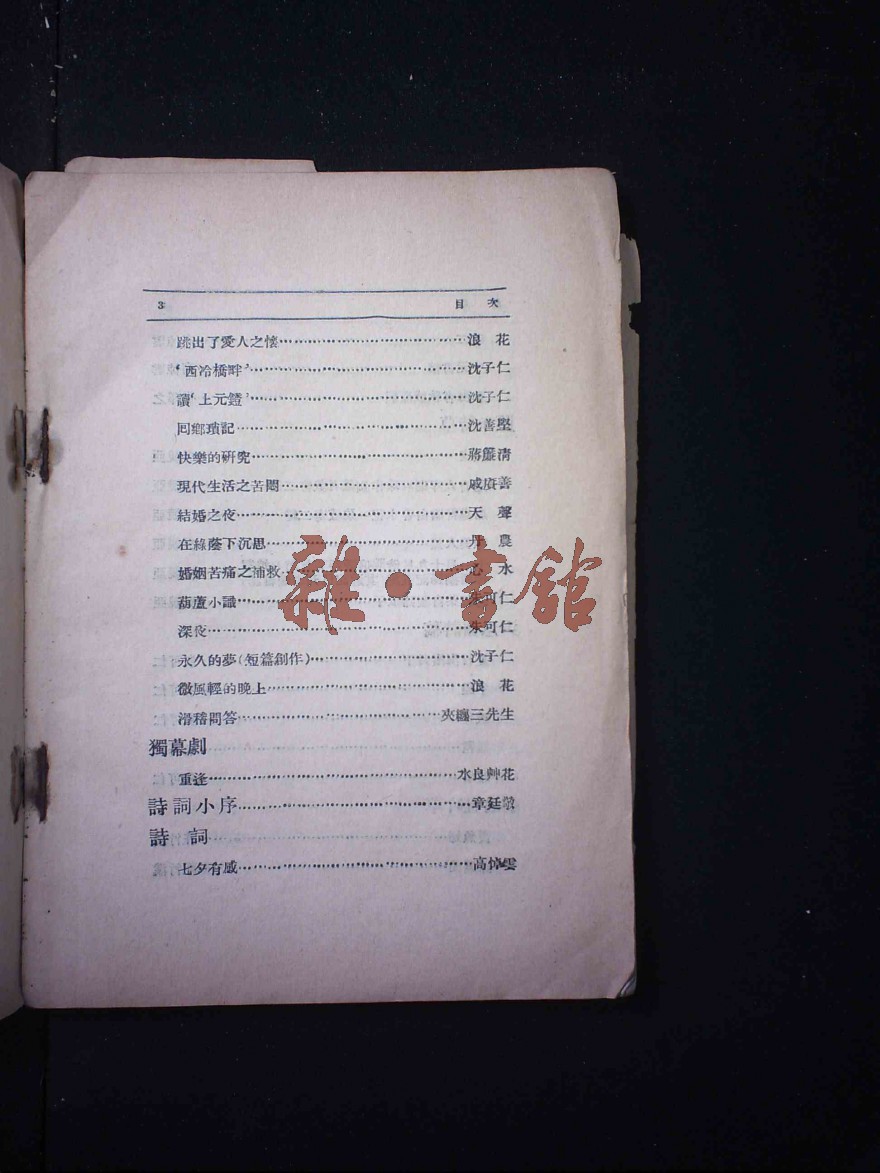 3 目次
跳出了愛人之懷……浪花
‘西冷橋畔’……沈子仁
讀‘上元鐙’……沈子仁
回鄉瑣記……沈善堅
快樂的研究……蔣鏖清
現代生活之苦悶……戚賡善
結婚之夜……天聲
在綠蔭下沉思……丹農
婚姻苦痛之補救……心水
葫蘆小議……朱可仁
深夜……朱可仁
永久的夢(短篇創作)……沈子仁
微風輕的晚上……浪花
滑稽問答……夾纏三先生
獨幕劇
重逢……水良艸花
詩詞小序……章廷敬
詩詞
七夕有感……高悼雲
雜·書館